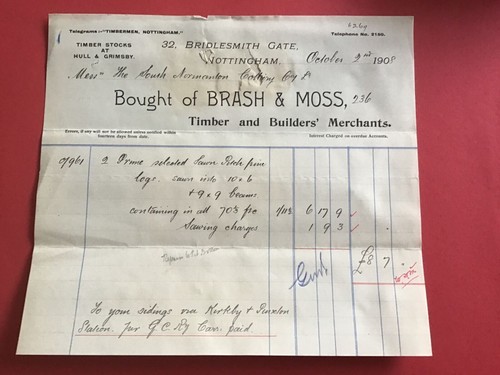 Telegrams:-"TIMBERMEN, NOTTINGHAM."
Telephone No. 2150.
TIMBER STOCKS
AT
HULL & GRIMSBY.
32, BRIDLESMITH GATE,
NOTTINGHAM.
October 2nd 1908
Messrs The South Normanton Colliery Coy Ld
Bought of BRASH & MOSS, 236
Timber and Builders' Merchants.
Return, if any will not be allowed unless notified within
fourteen days from date.
Interest Charged on overdue Accounts.
2 Prime selected Sawn Pitch pine
logs. sawn into 10 x 6
& 9 x 9 beams
containing in all 70⅔ fsc 1/11½ 6 17 9
Sawing charges 1 9 3
£8 7 .
To your sidings via Kirkby & Pinxton
Station, per G C Ry Carr. paid.